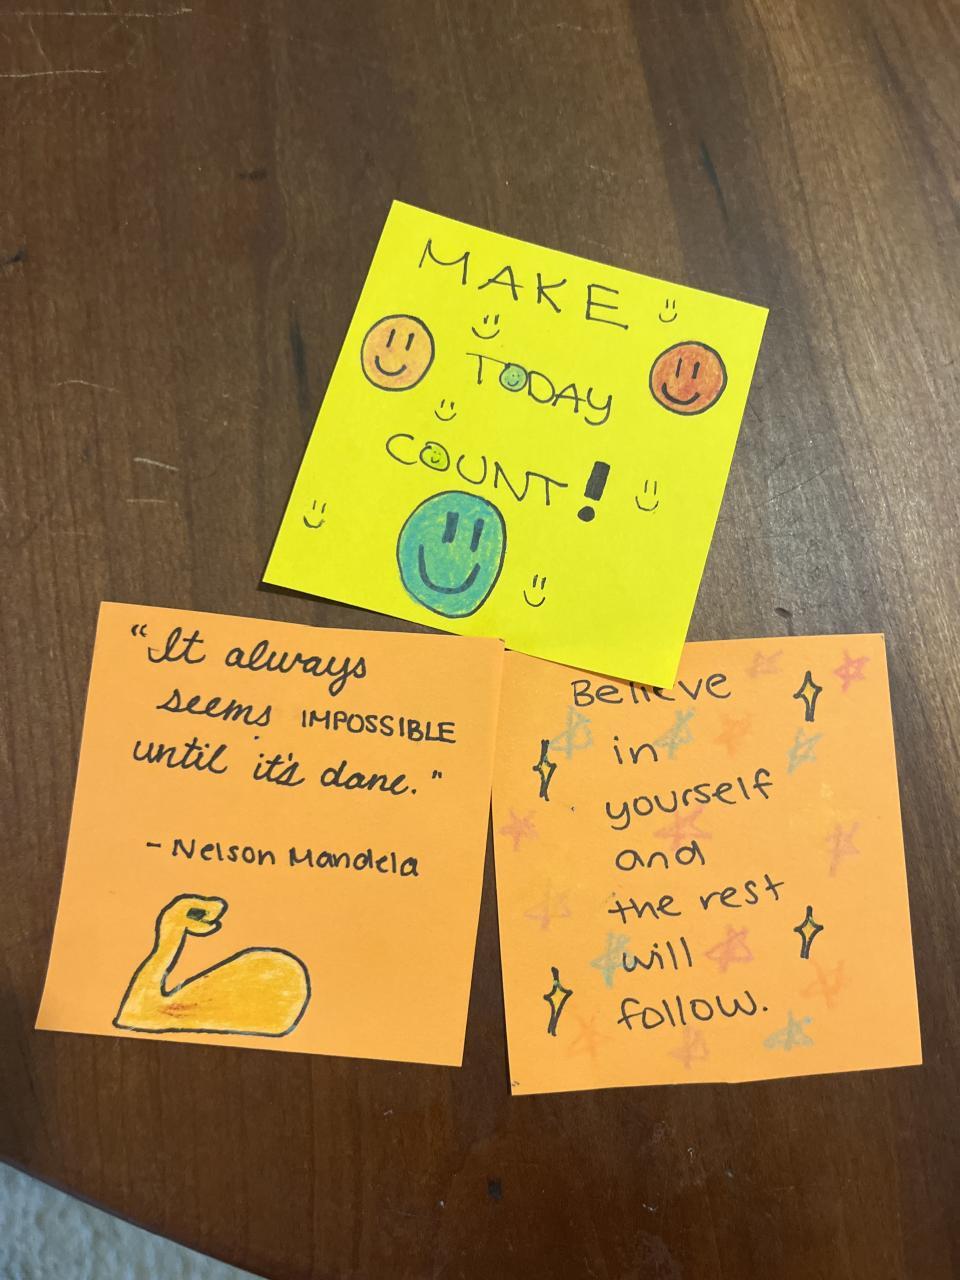 MAKE
TODAY
COUNT!
"It always
seems IMPOSSIBLE
until it's done."
- Nelson Mandela
Believe
in
yourself
and
the rest
will
follow.